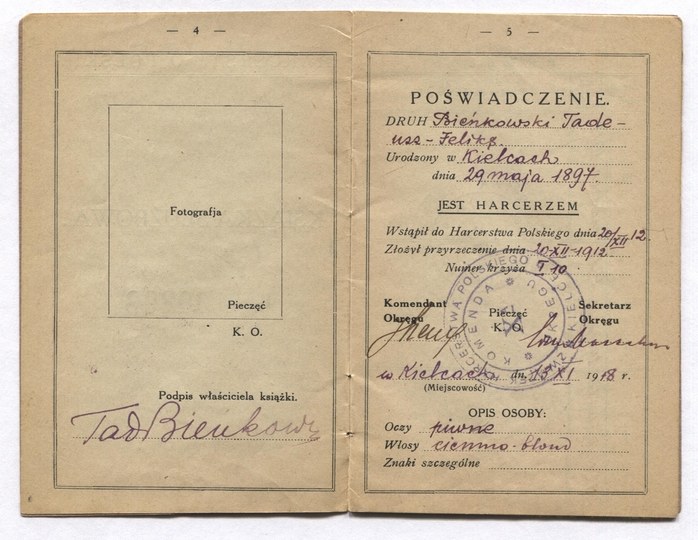 — 4 —
Fotografja
Pieczęć
K. O.
Podpis właściciela książki.
Tad Bieńkowski
— 5 —
POŚWIADCZENIE.
DRUH Bieńkowski Tade-
usz-Feliks
Urodzony w Kielcach
dnia 29 maja 1897.
JEST HARCERZEM
Wstąpił do Harcerstwa Polskiego dnia 20/XII 12.
Złożył przyrzeczenie dnia 20-XII-1912
Numer krzyża I 10
Komendant Okręgu
Pieczęć K. O.
Sekretarz Okręgu
w Kielcach, dn. 15/XI 1918 r.
(Miejscowość)
OPIS OSOBY:
Oczy piwne
Włosy ciemno-blond
Znaki szczególne